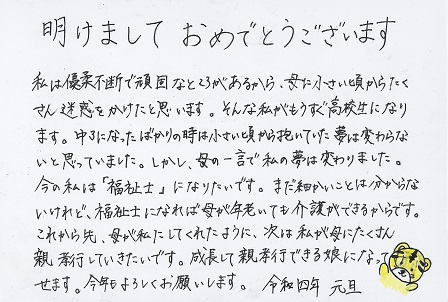 明けまして おめでとうございます
私は優柔不断で頑固なところがあるから、母に小さい頃からたく
さん迷惑をかけたと思います。そんな私がもうすぐ高校生になり
ます。中3になったばかりの時は小さい頃から抱いていた夢は変わらな
いと思っていました。しかし、母の一言で私の夢は変わりました。
今の私は「福祉士」になりたいです。まだ細かいことは分からな
いけれど、福祉士になれば母が年老いても介護ができるからです。
これから先、母が私にしてくれたように、次は私が母にたくさん
親孝行していきたいです。成長して親孝行できる娘になって
せます。今年もよろしくお願いします。 令和四年 元旦